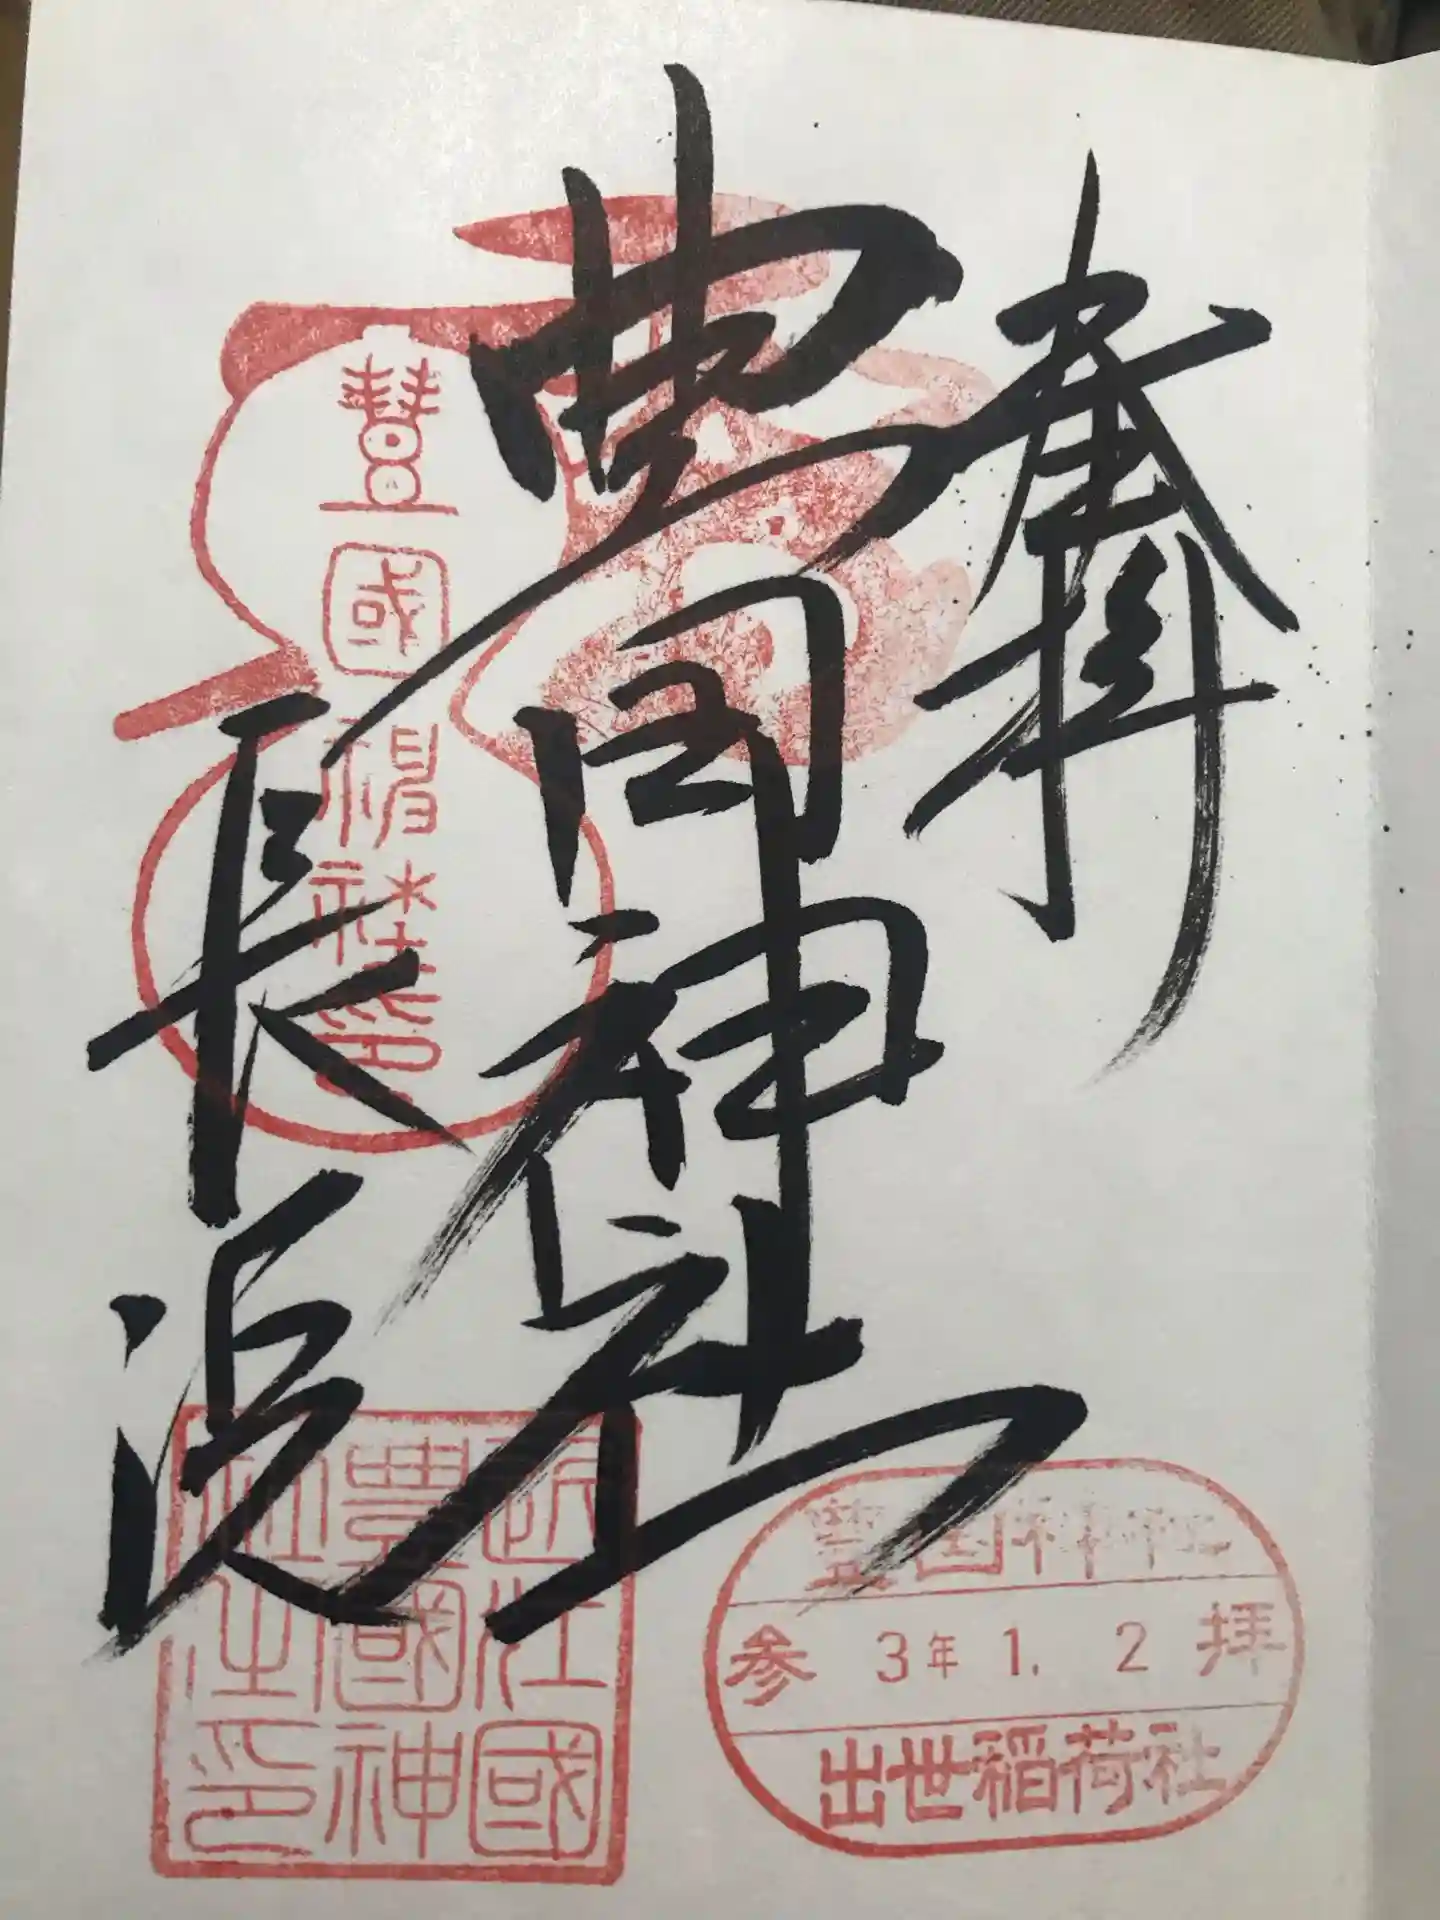 奉拝
豊国神社
長浜
豊國神社印
近江國
豊國神
社之印
豊国神社
参 3年 1. 2 拝
出世稲荷社